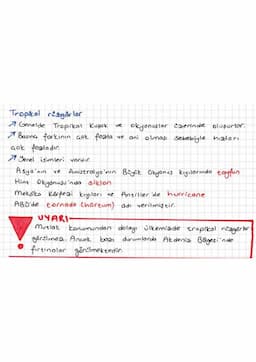 Tropikal rüzgarlar
→ Genelde Tropikal Kuşak ve Okyanuslar üzerinde oluşurlar.
→ Basınç farkının çok fazla ve ani olması sebebiyle hızları
çok fazladır.
→ Yerel isimleri vardır.
Asya'nın ve Avustralya'nın Büyük Okyanus kıyılarında tayfun
Hint Okyanusu'nda siklon
Meksika Körfezi kıyıları ve Antiller'de hurricane
ABD'de tornado (hortum) adı verilmiştir.
UYARI
Mutlak konumundan dolayı ülkemizde tropikal rüzgarlar
görülmez. Ancak bazı durumlarda Akdeniz Bölgesi'nde
fırtınalar görülmektedir.